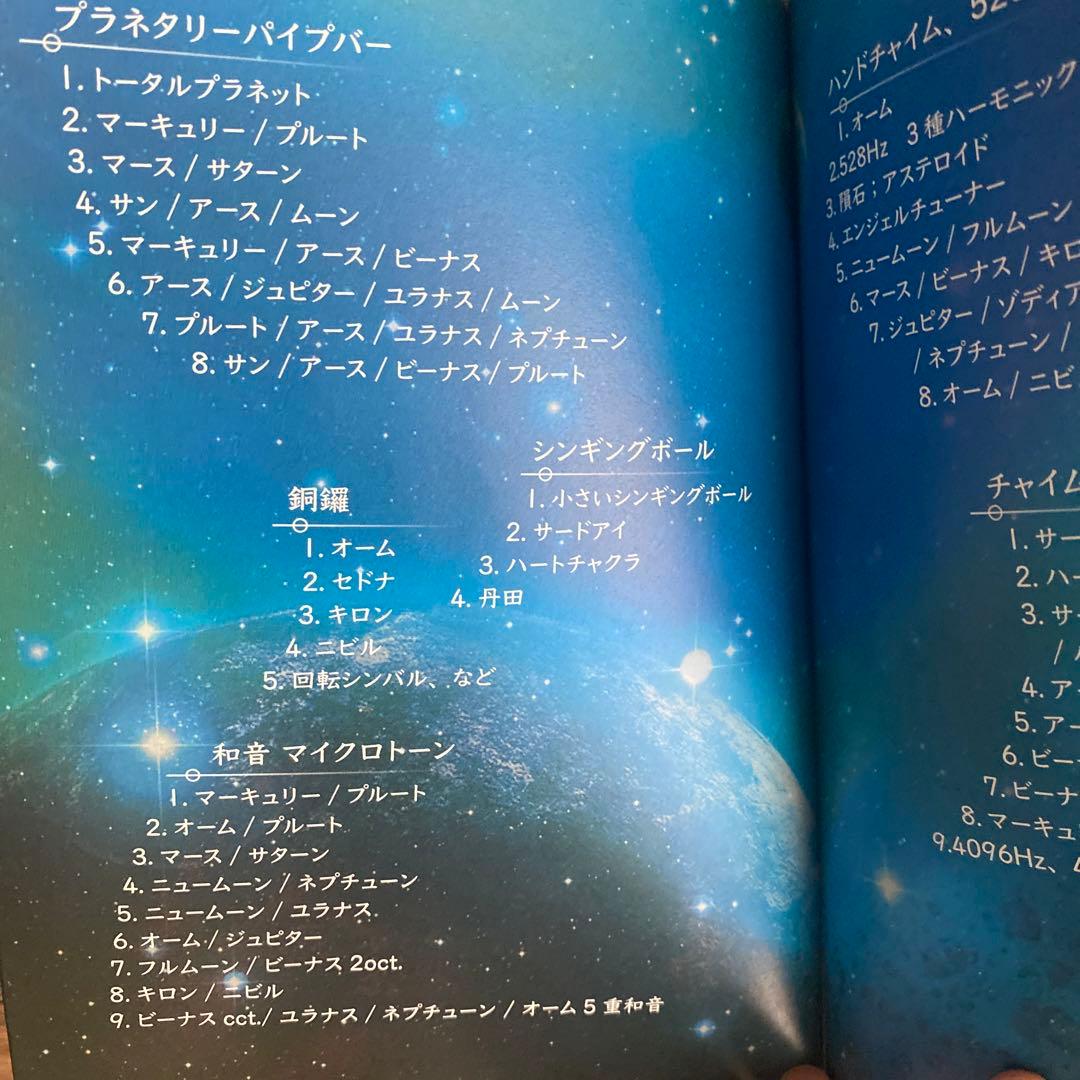 プラネタリーパイプバー
1. トータルプラネット
2. マーキュリー / プルート
3. マース / サターン
4. サン / アース / ムーン
5. マーキュリー / アース / ビーナス
6. アース / ジュピター / ユラナス / ムーン
7. プルート / アース / ユラナス / ネプチューン
8. サン / アース / ビーナス / プルート
シンギングボール
1. 小さいシンギングボール
2. サードアイ
3. ハートチャクラ
4. 丹田
銅鑼
1. オーム
2. セドナ
3. キロン
4. ニビル
5. 回転シンバル、など
和音 マイクロトーン
1. マーキュリー / プルート
2. オーム / プルート
3. マース / サターン
4. ニュームーン / ネプチューン
5. ニュームーン / ユラナス
6. オーム / ジュピター
7. フルムーン / ビーナス 2oct.
8. キロン / ニビル
9. ビーナス cct./ ユラナス / ネプチューン / オーム 5 重和音
ハンドチャイム、
1. オーム
2.528Hz 3 種ハーモニック
3. 隕石 ; アステロイド
4. エンジェルチューナー
5. ニュームーン / フルムーン
6. マース / ビーナス / キロ
7. ジュピター / ゾディア
/ ネプチューン /
8. オーム / ニビ
チャイム
1. サー
2. ハー
3. サ
4. ア
5. アー
6. ビー
7. ビーナ
8. マーキュ
9.4096Hz、